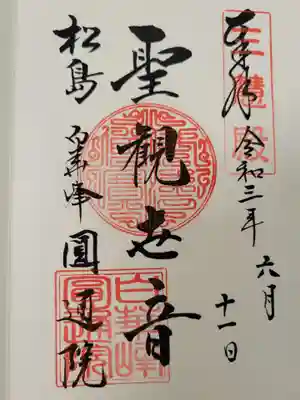 三慧殿
奉拝 令和三年 六月 十一日
聖観世音
松島 白華峰 圓通院
白華峰
圓通院